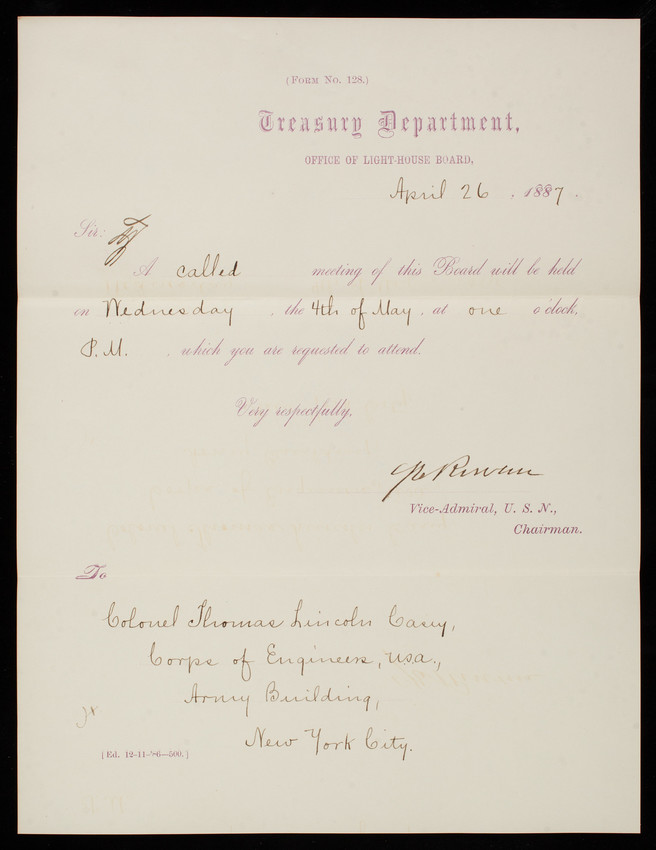 (FORM NO. 128.)
Treasury Department,
OFFICE OF LIGHT-HOUSE BOARD,
April 26 . 1887 .
Sir:
A called meeting of this Board will be held
on Wednesday , the 4th of May , at one o'clock,
P. M. , which you are requested to attend.
Very respectfully,
Rowan
Vice-Admiral, U. S. N.,
Chairman.
To
Colonel Thomas Lincoln Casey,
Corps of Engineers, U.S.A.,
Army Building,
New York City.
[Ed. 12-11-'86—500.]